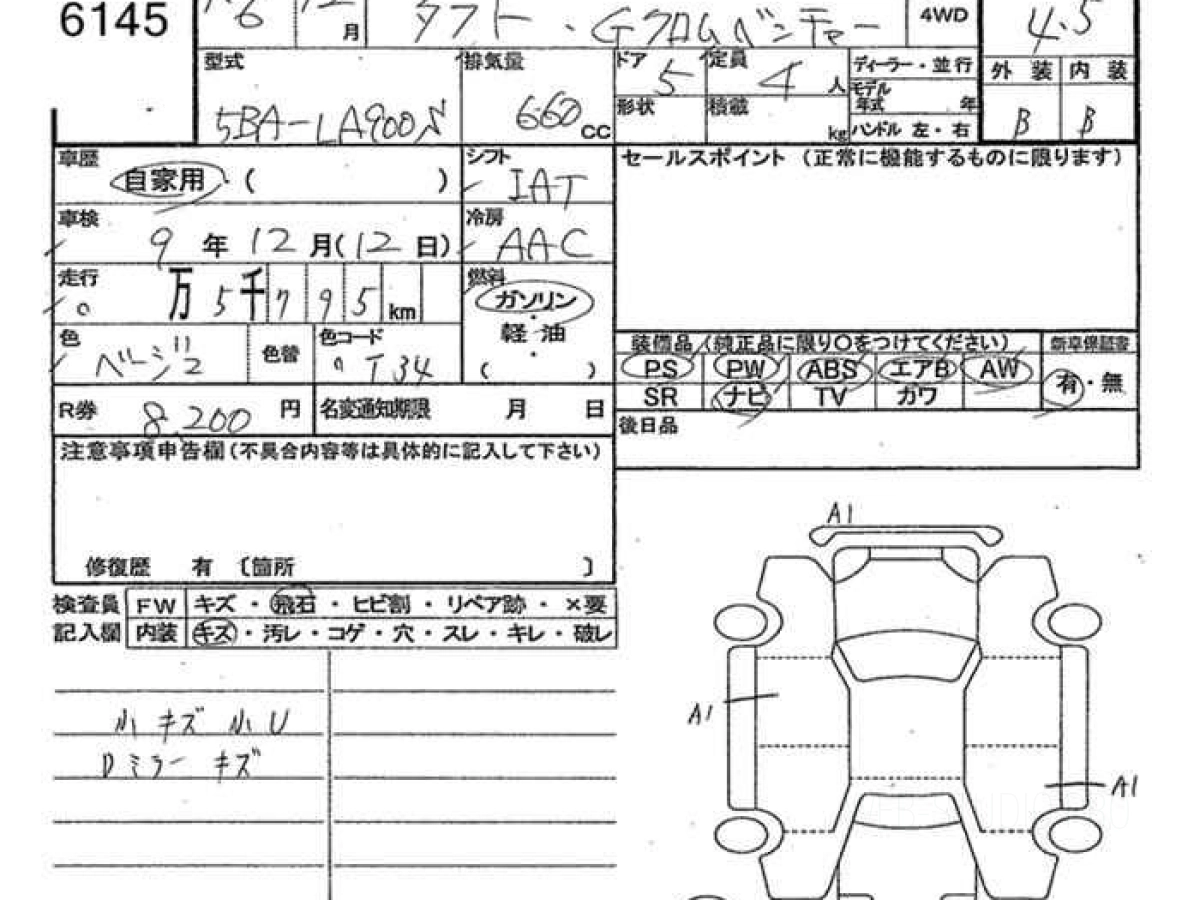 6145
6 12月 タフト・Gクロムベンチャー 4WD 4.5
型式 5BA-LA900S
排気量 660cc
ドア 5 定員 4人
形状 積載 kg
ディーラー・並行
モデル年式 年
ハンドル 左・右
外装 内装
B B
車歴 自家用・( )
シフト IAT
車検 9年12月(12日)
冷房 AAC
走行 0万5千795km
燃料 ガソリン・軽油・( )
色 ベージュ2 色替 色コード T34
R券 8,200円 名変通知期限 月 日
セールスポイント (正常に機能するものに限ります)
装備品(純正品に限り○をつけてください) 新車保証書
PS PW ABS エアB AW 有・無
SR ナビ TV ガワ
後日品
注意事項申告欄(不具合内容等は具体的に記入して下さい)
修復歴 有 〔箇所 〕
検査員 FW キズ・飛石・ヒビ割・リペア跡・×要
記入欄 内装 キズ・汚レ・コゲ・穴・スレ・キレ・破レ
小キズ 小U
Dミラー キズ
A1
A1
A1